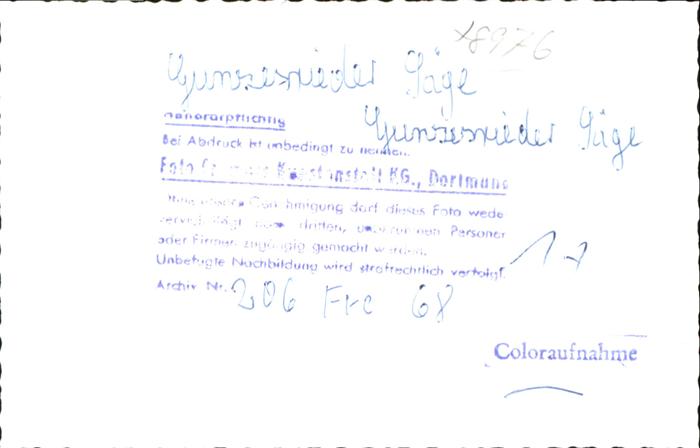 x8976
Gunzesrieder Säge
Gunzesrieder Säge
honorarpflichtig
Bei Abdruck ist unbedingt zu nennen.
Foto Kunstanstalt KG., Dortmund
Ohne unsere Genehmigung darf dieses Foto wede
vervielfältigt noch dritten, Personen
oder Firmen zugängig gemacht werden.
Unbefugte Nachbildung wird strafrechtlich verfolgt.
Archiv Nr. 206 Fre 68
Coloraufnahme